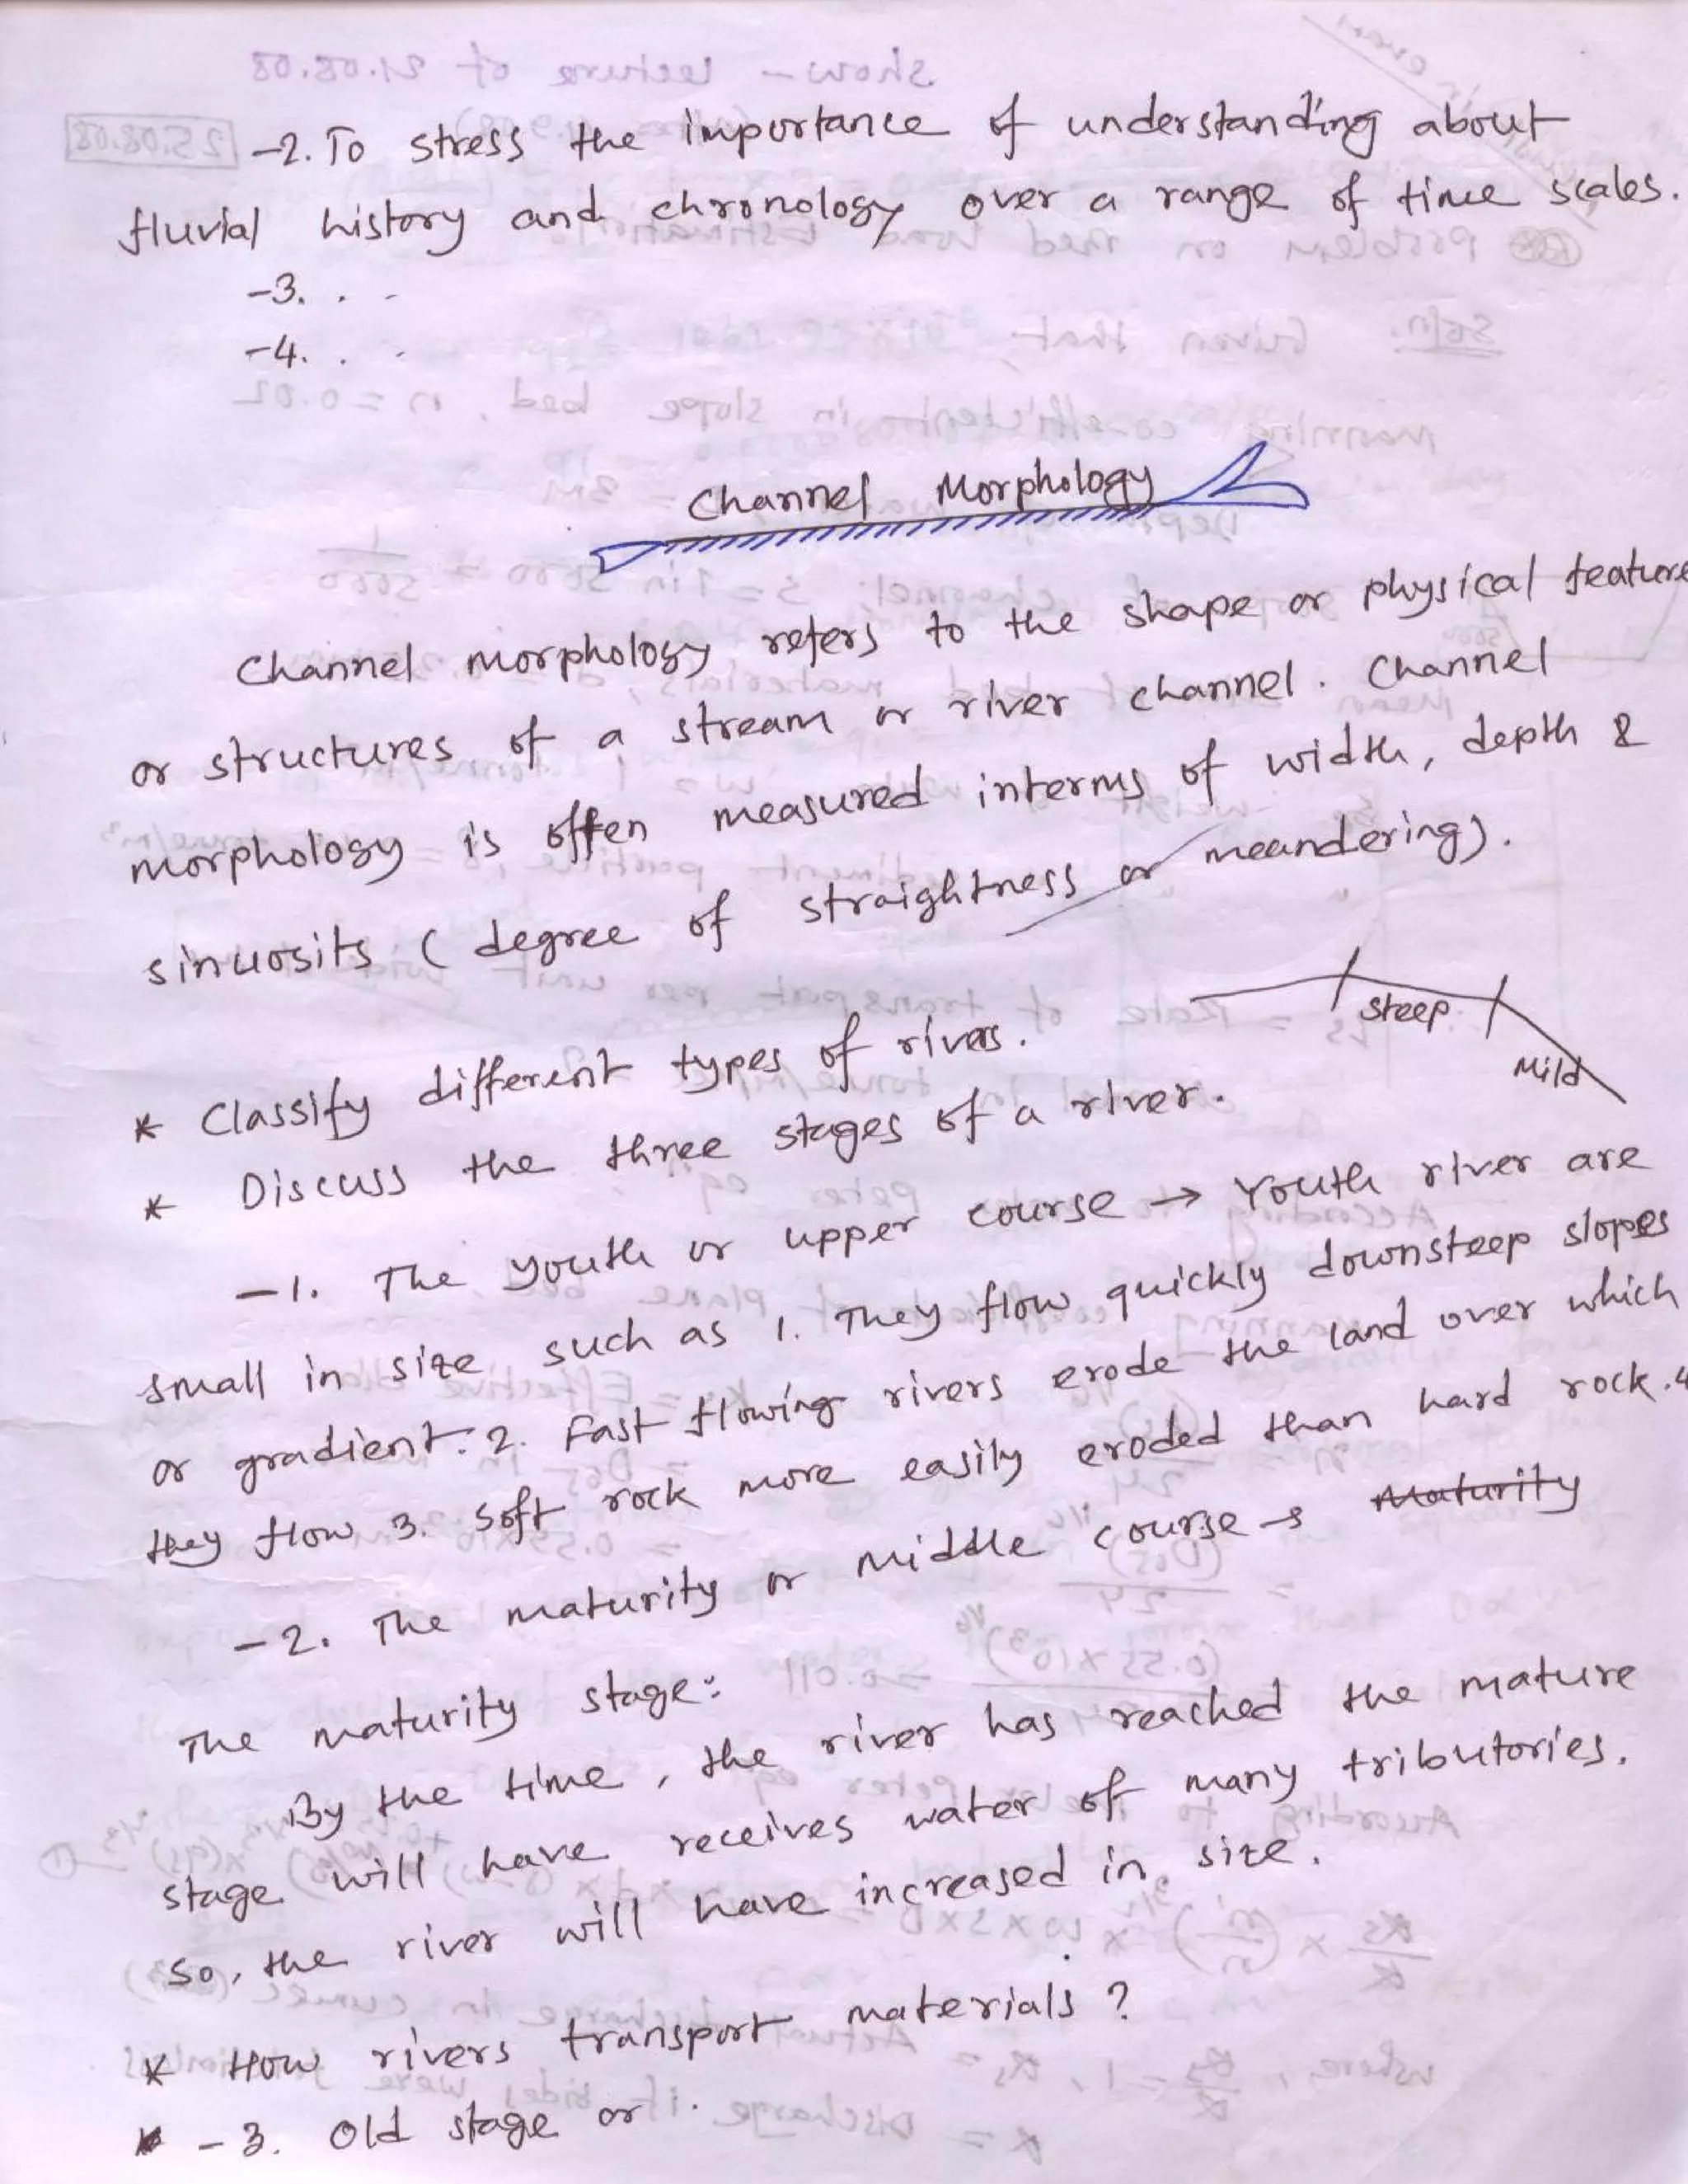 -2. To stress the importance of understanding about
fluvial history and chronology over a range of time scales.
-3. . -
-4. . -
Channel Morphology
Channel morphology refers to the shape or physical feature
or structures of a stream or river channel. Channel
morphology is often measured interms of width, depth &
sinuosits (degree of straightness or meandering).
steep
Mild
* Classify different types of rivers.
* Discuss the three stages of a river.
-1. The youth or upper course → Youth river are
small in size such as 1. They flow quickly downsteep slopes
or gradient. 2. Fast flowing rivers erode the land over which
they flow 3. Soft rock more easily eroded than hard rock. 4
-2. The maturity or middle course → Maturity
The maturity stage:
By the time, the river has reached the mature
stage will have receives water of many tributories.
So, the river will have increased in size.
* How rivers transport materials?
* -3. Old stage or .